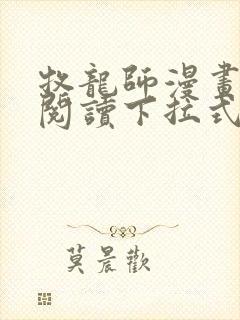 牧龍師漫畫
閱讀下拉式
莫晨歡